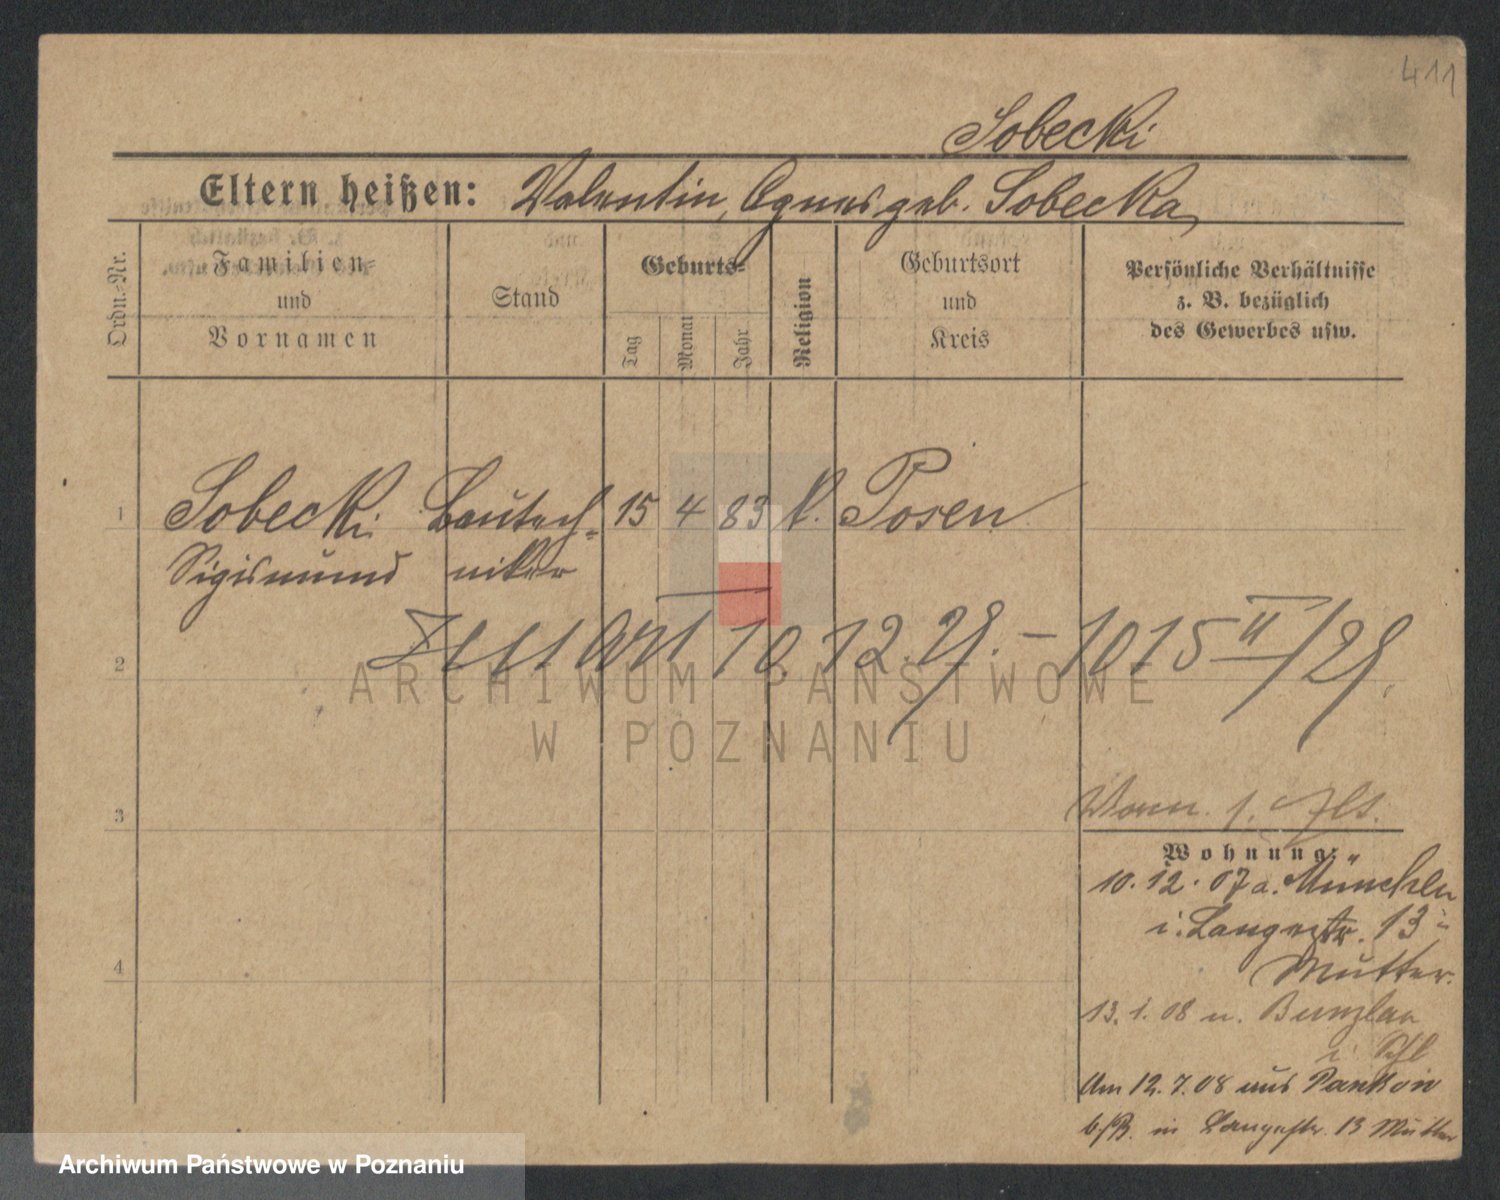 411
Sobecki
Eltern heißen: Valentin, Agnes geb. Sobecka
Ordn.-Nr.
Familien-
und
Vornamen
Stand
Geburts-
Tag
Monat
Jahr
Religion
Geburtsort
und
Kreis
Persönliche Verhältnisse
z. B. bezüglich
des Gewerbes usw.
1 Sobecki Bautech- 15 4 83 k. Posen
Sigismund niker
10. 12. 1015 II/
2
3
Wohnung:
10. 12. 07 a. München
i. Langestr. 13
Mutter.
4
13. 1. 08 n. Bunzlau
i Schl
Am 12. 7. 08 aus Pankow
b/B. in Langestr. 13 Mutter
ARCHIWUM PAŃSTWOWE
W POZNANIU
Archiwum Państwowe w Poznaniu